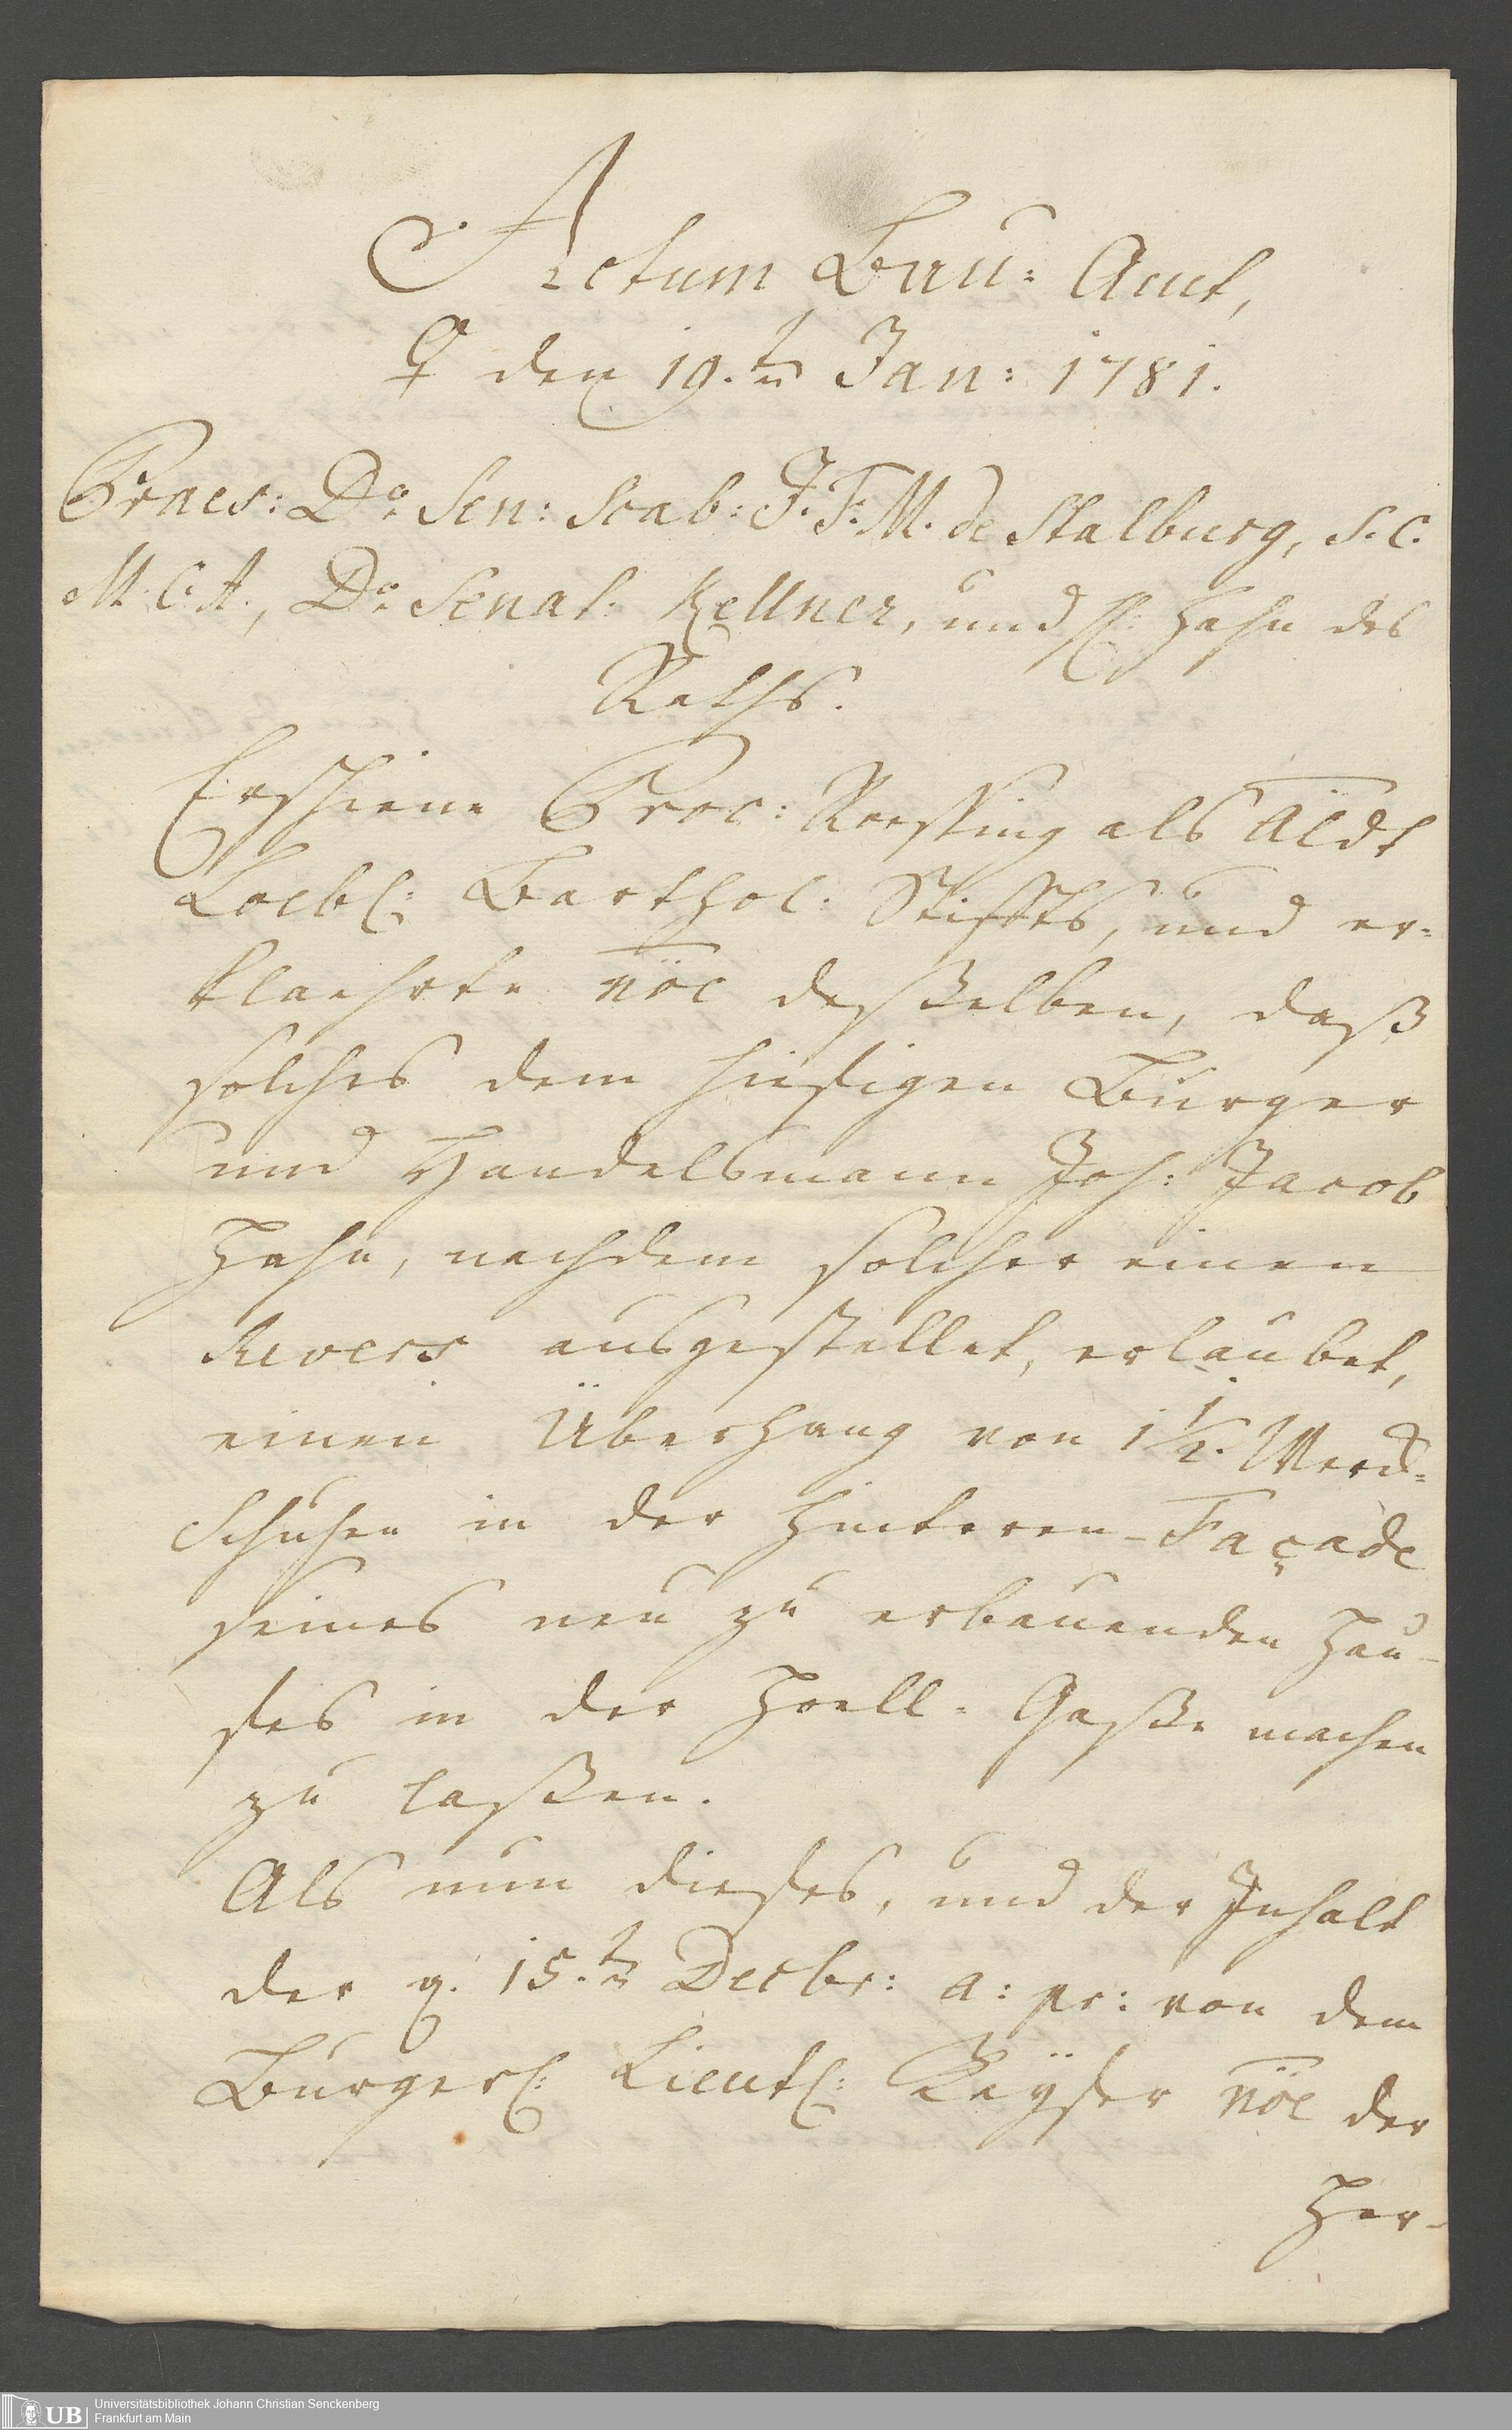 Actum Bau: Amt,
♀ den 19.ten Jan: 1781.
Praes: Do. Sen: Scab: J. F. M. de Stalburg, S. C.
M. C. A., Do. Senat: Kellner, und H: Hahn des
Raths.
Erschiene Proc: Roessing als Acdt
Loebl: Barthol: Stiffts, und er=
klaehrte nõe desselben, daß
solches dem hiesigen Bürger
und Handelsmann Joh: Jacob
Hahn, nachdem solcher einen
Revers ausgestellet, erlaubet,
einen Überhang von 1 1/2. Werck=
Schuhen in der hinteren-Façade
seines neu zu erbauenden Hau-
ses in der Hoell=Gaße machen
zu laßen.
Als nun dieses, und der Inhalt
der q. 15.ten Decbr: a: pr: von dem
Bürgerl: Lieutl: Keyser nõe der
Her-
Universitätsbibliothek Johann Christian Senckenberg
Frankfurt am Main
UB